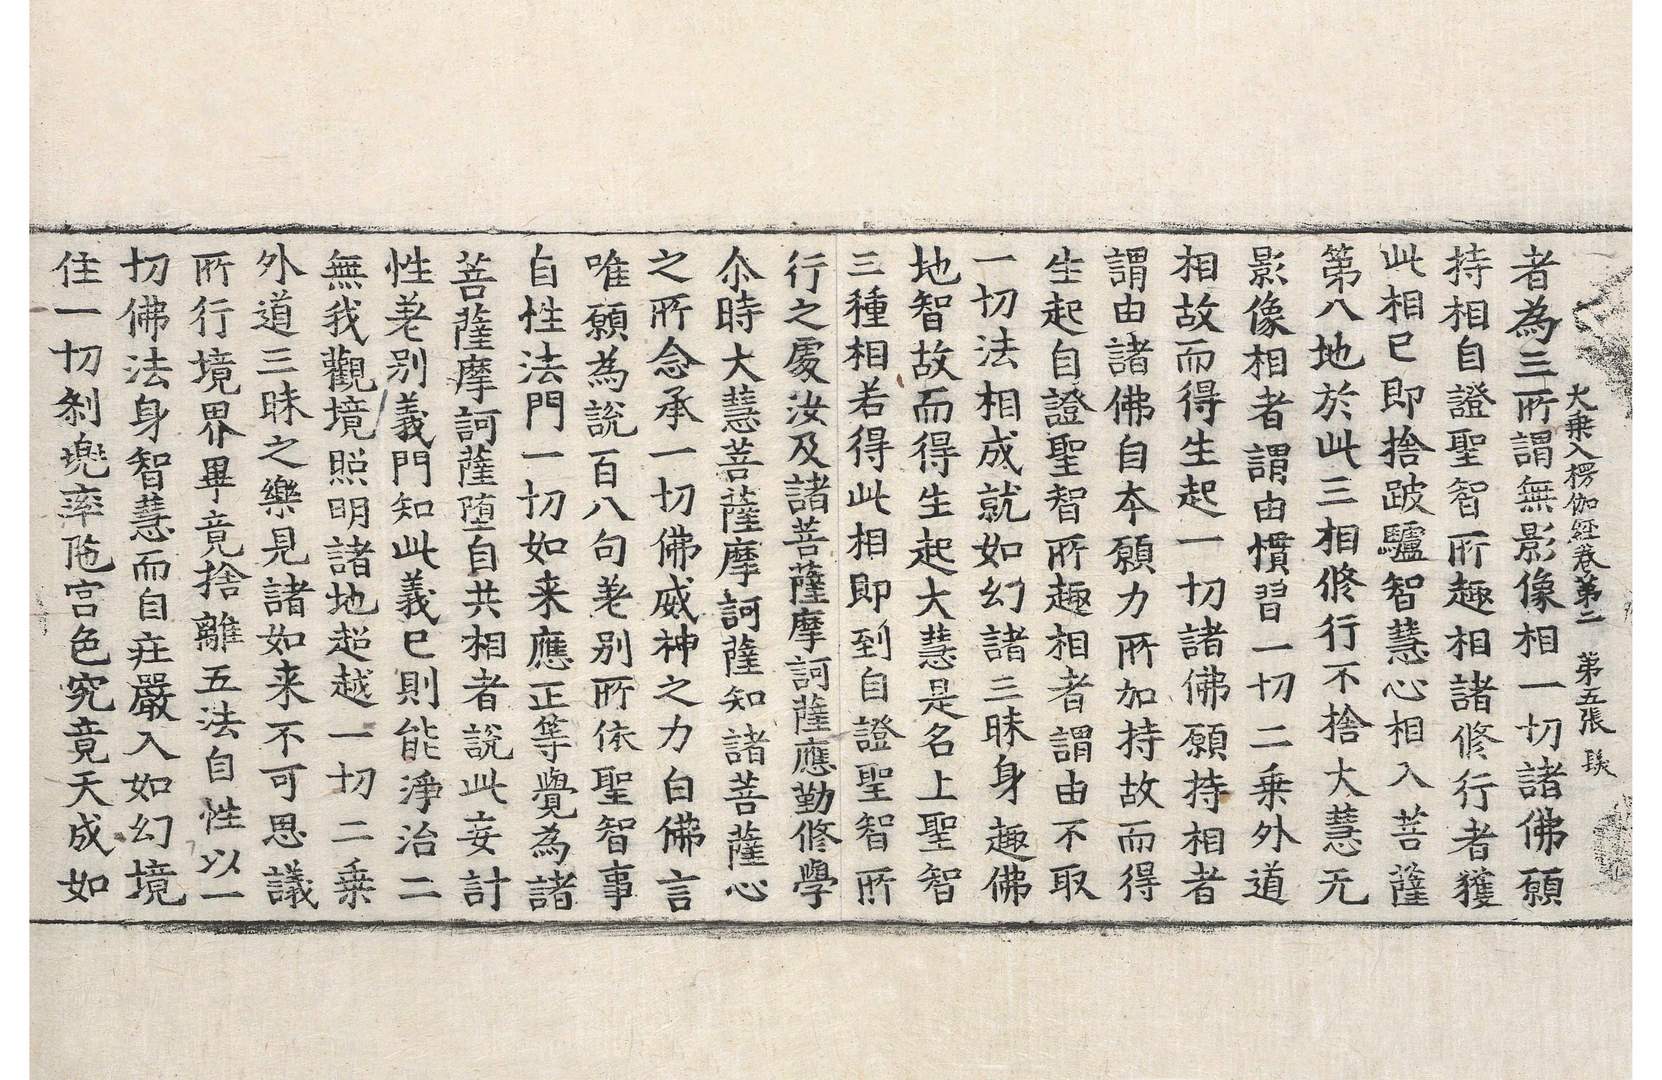 大乗入楞伽経卷第二　第五張　㷋
者為三所謂無影像相一切諸佛願
持相自證聖智所趣相諸修行者獲
此相已即捨跛驢智慧心相入菩薩
第八地於此三相修行不捨大慧无
影像相者謂由慣習一切二乗外道
相故而得生起一切諸佛願持相者
謂由諸佛自本願力所加持故而得
生起自證聖智所趣相者謂由不取
一切法相成就如幻諸三昧身趣佛
地智故而得生起大慧是名上聖智
三種相若得此相即到自證聖智所
行之處汝及諸菩薩摩訶薩應勤修學
尒時大慧菩薩摩訶薩知諸菩薩心
之所念承一切佛威神之力白佛言
唯願為說百八句差别所依聖智事
自性法門一切如来應正等覺為諸
菩薩摩訶薩墮自共相者說此妄計
性差别義門知此義已則能淨治二
無我觀境照明諸地超越一切二乗
外道三昧之樂見諸如来不可思議
所行境界畢竟捨離五法自性以一
切佛法身智慧而自莊嚴入如幻境
住一切刹兜率陁宫色究竟天成如